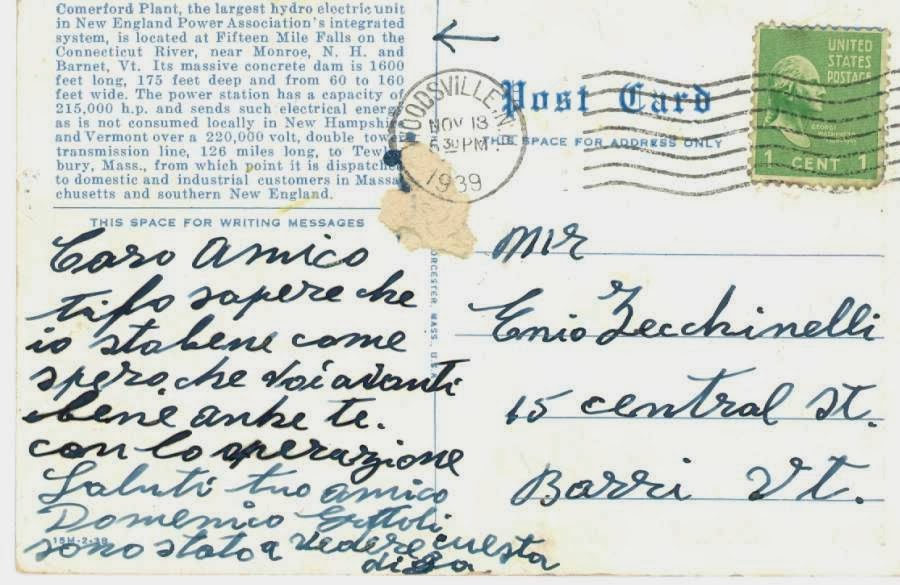 Comerford Plant, the largest hydro electric unit
in New England Power Association's integrated
system, is located at Fifteen Mile Falls on the
Connecticut River, near Monroe, N. H. and
Barnet, Vt. Its massive concrete dam is 1600
feet long, 175 feet deep and from 60 to 160
feet wide. The power station has a capacity of
215,000 h.p. and sends such electrical energ
as is not consumed locally in New Hampshi
and Vermont over a 220,000 volt, double tow
transmission line, 126 miles long, to Tew
bury, Mass., from which point it is dispatche
to domestic and industrial customers in Massa
chusetts and southern New England.
THIS SPACE FOR WRITING MESSAGES
Caro Amico
ti fo sapere che
io sta bene come
spero che voi avanti
bene anke te.
con lo operazione
Saluti tuo amico
Domenico
sono stato a vedere cuesta
15M-2-39
ORCESTER, MASS., U.S.A.
OODSVILLE N.
NOV 13
5 30 PM
1939
Post Card
THIS SPACE FOR ADDRESS ONLY
UNITED
STATES
POSTAGE
1 CENT 1
Mir
Enio Zecchinelli
15 central St.
Barri Vt.